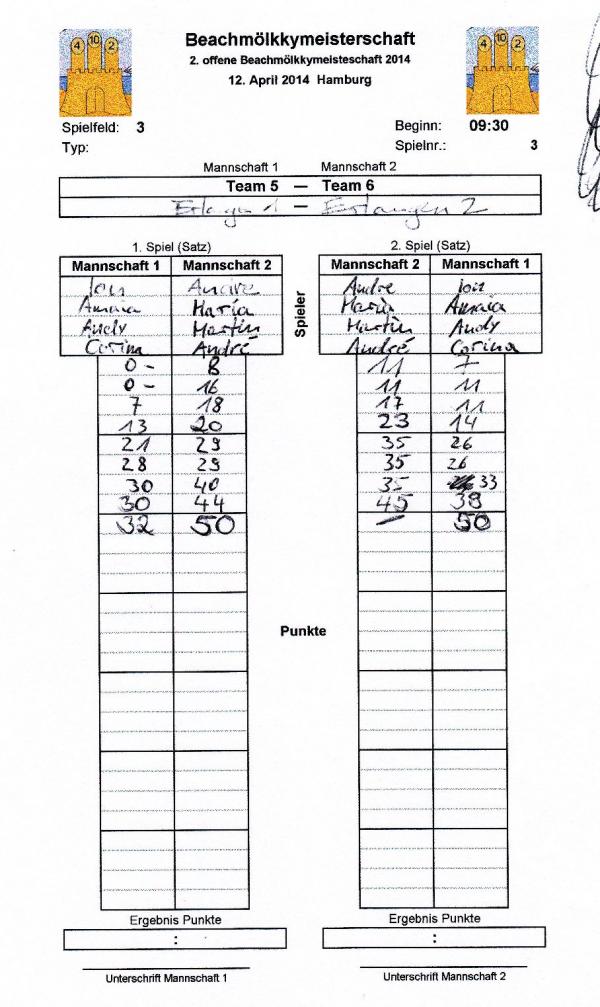 4 10 2
Beachmölkkymeisterschaft
4 10 2
2. offene Beachmölkkymeisteschaft 2014
12. April 2014 Hamburg
Spielfeld: 3 Beginn: 09:30
Typ: Spielnr.: 3
Mannschaft 1 Mannschaft 2
Team 5 — Team 6
Erlangen 1 — Erlangen 2
1. Spiel (Satz) 2. Spiel (Satz)
Mannschaft 1 Mannschaft 2 Mannschaft 2 Mannschaft 1
Jon Andre Andre Jon
Amaia María María Amaia
Andy Martin Martin Andy
Corina André André Corina
Spieler
0 - 8 11 7
0 - 16 11 11
7 18 17 11
13 20 23 14
21 29 35 26
28 29 35 26
30 40 35 33
30 44 45 39
32 50 — 50
Punkte
Ergebnis Punkte Ergebnis Punkte
: :
Unterschrift Mannschaft 1 Unterschrift Mannschaft 2